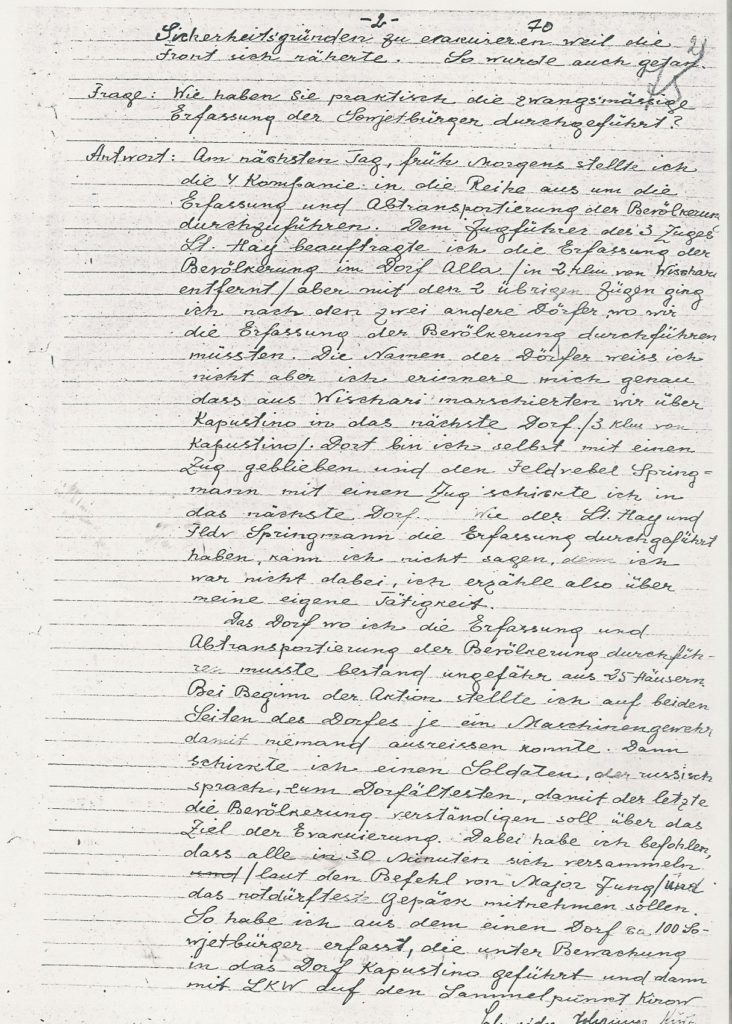 -2-
70
2
Sicherheitsgründen zu evakuieren weil die
Front sich näherte. So wurde auch getan.
Frage: Wie haben Sie praktisch die zwangsmässige
Erfassung der Sowjetbürger durchgeführt?
Antwort: Am nächsten Tag, früh Morgens stellte ich
die 4 Kompanie in die Reihe aus um die
Erfassung und Abtransportierung der Bevölkerun
durchzuführen. Dem Zugführer des 3 Zuges
Lt. Hay beauftragte ich die Erfassung der
Bevölkerung im Dorf Alla /in 2 klm von Wischari
entfernt/ aber mit den 2 übrigen Zügen ging
ich nach den zwei andere Dörfer, wo wir
die Erfassung der Bevölkerung durchführen
müssten. Die Namen der Dörfer weiss ich
nicht aber ich erinnere mich genau
dass aus Wischari marschierten wir über
Kapustino in das nächste Dorf /3 klm von
Kapustino/. Dort bin ich selbst mit einen
Zug geblieben und den Feldvebel Spring=
mann mit einen Zug schickte ich in
das nächste Dorf. Wie der Lt. Hay und
Fldv Springmann die Erfassung durchgeführt
haben, kann ich nicht sagen, denn ich
war nicht dabei, ich erzähle also über
meine eigene Tätigkeit.
Das Dorf wo ich die Erfassung und
Abtransportierung der Bevölkerung durchfüh-
ren musste bestand ungefähr aus 25 Häusern
Bei Beginn der Aktion stellte ich auf beiden
Seiten des Dorfes je ein Maschinengewehr
damit niemand ausreissen konnte. Dann
schickte ich einen Soldaten, der russisch
sprach, zum Dorfältesten, damit der letzte
die Bevölkerung verständigen soll über das
Ziel der Evakuierung. Dabei habe ich befohlen,
dass alle in 30 Minuten sich versammeln
und /laut den Befehl von Major Jung/ und
das notdürfteste Gepäck mitnehmen sollen.
So habe ich aus dem einen Dorf ca. 100 So-
wjetbürger erfasst, die unter Bewachung
in das Dorf Kapustino geführt und dann
mit LKW auf den Sammelpunkt Kirow